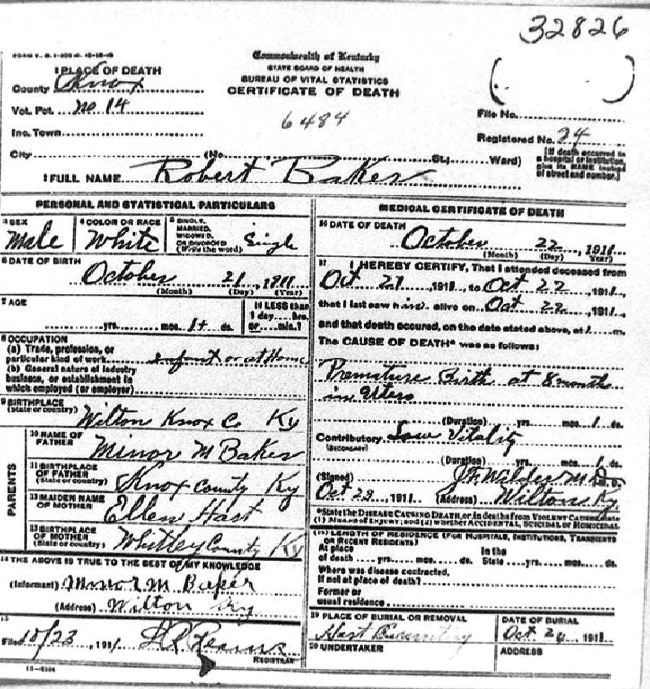 32826
Commonwealth of Kentucky
STATE BOARD OF HEALTH
BUREAU OF VITAL STATISTICS
CERTIFICATE OF DEATH
6484
1 PLACE OF DEATH
County Knox
Vot. Pct. No 14
Inc. Town
City (No. St.; Ward)
File No.
Registered No. 24
[If death occurred in a hospital or institution, give its NAME instead of street and number.]
2 FULL NAME Robert Baker
PERSONAL AND STATISTICAL PARTICULARS
3 SEX Male
4 COLOR OR RACE White
5 SINGLE, MARRIED, WIDOWED, OR DIVORCED (Write the word) Single
6 DATE OF BIRTH October 21, 1911
(Month) (Day) (Year)
7 AGE
yrs. mos. 1+ ds.
If LESS than 1 day hrs. or min.?
8 OCCUPATION
(a) Trade, profession, or particular kind of work infant or at Home
(b) General nature of industry business, or establishment in which employed (or employer)
9 BIRTHPLACE (State or country) Wilton Knox C Ky
PARENTS
10 NAME OF FATHER Minor M Baker
11 BIRTHPLACE OF FATHER (State or country) Knox County Ky
12 MAIDEN NAME OF MOTHER Ellen Hast
13 BIRTHPLACE OF MOTHER (State or country) Whitley County Ky
14 THE ABOVE IS TRUE TO THE BEST OF MY KNOWLEDGE
(Informant) Minor M Baker
(Address) Wilton Ky
15
Filed 10/23, 191
REGISTRAR
MEDICAL CERTIFICATE OF DEATH
16 DATE OF DEATH
October 22, 1911
(Month) (Day) (Year)
17 I HEREBY CERTIFY, That I attended deceased from
Oct 21, 1911, to Oct 22, 1911,
that I last saw him alive on Oct 22, 1911,
and that death occured, on the date stated above, at m.
The CAUSE OF DEATH* was as follows:
Premature Birth at 8 months
in Utero
(Duration) yrs. mos. 1 ds.
Contributory Low Vitality
(SECONDARY)
(Duration) yrs. mos. 1 ds.
(Signed) J.H. Wilder M.D.
Oct 23, 1911. (Address) Wilton Ky.
*State the DISEASE CAUSING DEATH, or, in deaths from VIOLENT CAUSES state (1) MEANS OF INJURY; and (2) whether ACCIDENTAL, SUICIDAL or HOMICIDAL.
18 LENGTH OF RESIDENCE (FOR HOSPITALS, INSTITUTIONS, TRANSIENTS OR RECENT RESIDENTS)
At place of death yrs. mos. ds. In the State yrs. mos. ds.
Where was disease contracted, if not at place of death?
Former or usual residence
19 PLACE OF BURIAL OR REMOVAL
Hast Cemetery
DATE OF BURIAL
Oct 24, 1911.
20 UNDERTAKER
ADDRESS